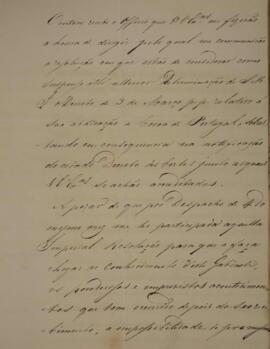 Contém este o Officio que V. Ex.ᵃˢ me fizerão
a honra de dirigir pelo qual me communicão
a resolução em que estão de considerar como
suspenso até ulterior Determinação de S. M.
I. o Decreto de 3 de Março p.p. relativo á
sua abdicação á Coroa de Portugal,
tando em consequencia na notificação
do citado Decreto ás Cortes junto ás quaes
V. Ex.ᵃˢ se achão acreditados.
Apezar de que por Despacho de 4 do
mesmo mez vai lhe participada aquella
Imperial Resolução para que a faça
chegar ao conhecimento d'este Gabinete,
os ponderosos e imprevistos acontecimen-
tos que tem occorrido depois do seu re-
cebimento, a impossibilidade de